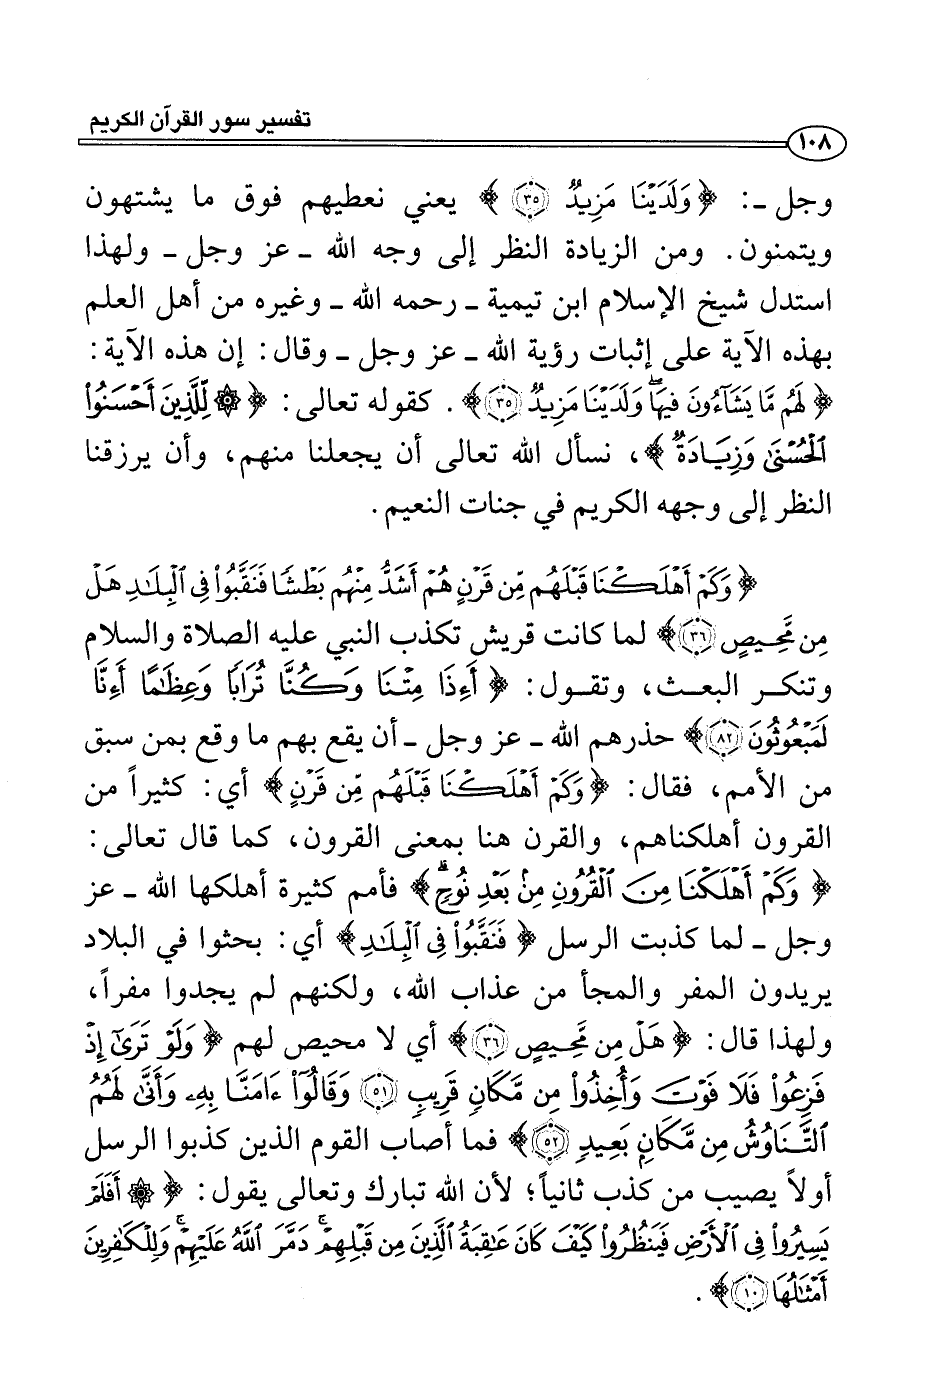 تفسير سور القرآن الكريم
١٠٨
وجل ـ: ﴿ وَلَدَيْنَا مَزِيدٌ ﴿٣٥﴾ ﴾ يعني نعطيهم فوق ما يشتهون
ويتمنون. ومن الزيادة النظر إلى وجه الله ـ عز وجل ـ ولهذا
استدل شيخ الإسلام ابن تيمية ـ رحمه الله ـ وغيره من أهل العلم
بهذه الآية على إثبات رؤية الله ـ عز وجل ـ وقال: إن هذه الآية:
﴿ لَهُم مَّا يَشَآءُونَ فِيهَا ۖ وَلَدَيْنَا مَزِيدٌ ﴿٣٥﴾ ﴾. كقوله تعالى: ﴿ ۞ لِّلَّذِينَ أَحْسَنُوا۟
ٱلْحُسْنَىٰ وَزِيَادَةٌ ۖ ﴾، نسأل الله تعالى أن يجعلنا منهم، وأن يرزقنا
النظر إلى وجهه الكريم في جنات النعيم.
﴿ وَكَمْ أَهْلَكْنَا قَبْلَهُم مِّن قَرْنٍ هُمْ أَشَدُّ مِنْهُم بَطْشًا فَنَقَّبُوا۟ فِى ٱلْبِلَـٰدِ هَلْ
مِن مَّحِيصٍ ﴿٣٦﴾ ﴾ لما كانت قريش تكذب النبي عليه الصلاة والسلام
وتنكر البعث، وتقول: ﴿ أَءِذَا مِتْنَا وَكُنَّا تُرَابًا وَعِظَـٰمًا أَءِنَّا
لَمَبْعُوثُونَ ﴿٨٢﴾ ﴾ حذرهم الله ـ عز وجل ـ أن يقع بهم ما وقع بمن سبق
من الأمم، فقال: ﴿ وَكَمْ أَهْلَكْنَا قَبْلَهُم مِّن قَرْنٍ ﴾ أي: كثيراً من
القرون أهلكناهم، والقرن هنا بمعنى القرون، كما قال تعالى:
﴿ وَكَمْ أَهْلَكْنَا مِنَ ٱلْقُرُونِ مِنۢ بَعْدِ نُوحٍ ۗ ﴾ فأمم كثيرة أهلكها الله ـ عز
وجل ـ لما كذبت الرسل ﴿ فَنَقَّبُوا۟ فِى ٱلْبِلَـٰدِ ﴾ أي: بحثوا في البلاد
يريدون المفر والمجأ من عذاب الله، ولكنهم لم يجدوا مفراً،
ولهذا قال: ﴿ هَلْ مِن مَّحِيصٍ ﴿٣٦﴾ ﴾ أي لا محيص لهم ﴿ وَلَوْ تَرَىٰٓ إِذْ
فَزِعُوا۟ فَلَا فَوْتَ وَأُخِذُوا۟ مِن مَّكَانٍ قَرِيبٍ ﴿٥١﴾ وَقَالُوٓا۟ ءَامَنَّا بِهِۦ وَأَنَّىٰ لَهُمُ
ٱلتَّنَاوُشُ مِن مَّكَانٍۭ بَعِيدٍ ﴿٥٢﴾ ﴾ فما أصاب القوم الذين كذبوا الرسل
أولاً يصيب من كذب ثانياً؛ لأن الله تبارك وتعالى يقول: ﴿ ۞ أَفَلَمْ
يَسِيرُوا۟ فِى ٱلْأَرْضِ فَيَنظُرُوا۟ كَيْفَ كَانَ عَـٰقِبَةُ ٱلَّذِينَ مِن قَبْلِهِمْ ۚ دَمَّرَ ٱللَّهُ عَلَيْهِمْ ۖ وَلِلْكَـٰفِرِينَ
أَمْثَـٰلُهَا ﴿١٠﴾ ﴾.